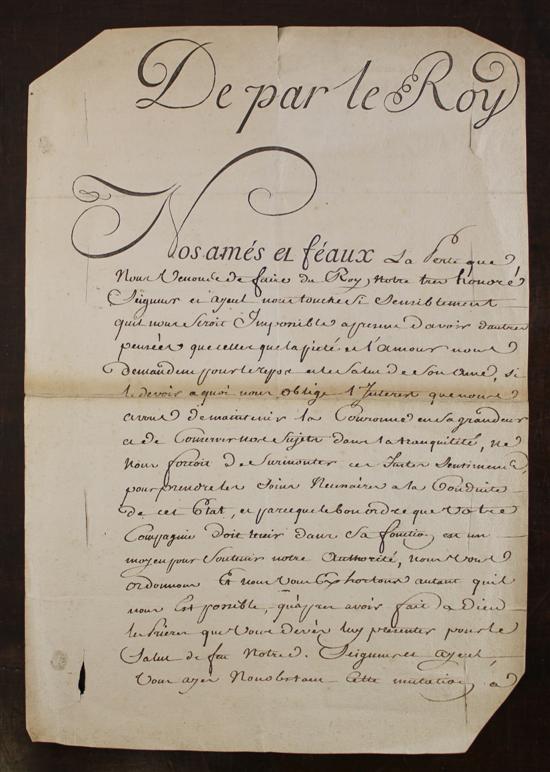 De par le Roy
Nos amés et féaux La Perte que
Nous Venons de faire du Roy, Notre tres honoré
Seigneur et ayeul nous touche Si Sensiblement
quil nous Seroit Impossible apresent d'avoir d'autres
pensées que celles que la pieté et l'Amour nous
Demandent pour le repos et le Salut de Son ame, si
le devoir a quoi nous oblige l'Interest que nous
avons de maintenir la Couronne en sa grandeur
et de Conserver nos Sujets dans la tranquilité, ne
Nous forçoit de Surmonter ces Justes Sentimens,
pour prendre les Soins Necessaires a la Conduite
de cet Etat, et parceque le bon ordre que Votre
Compagnie Doit tenir dans Sa fonction est un
moyen pour Soutenir notre Authorité, nous vous
ordonnons Et nous vous Exhortons autant quil
nous Est possible, qu'apres avoir fait a Dieu
les Prieres que Vous devés luy presenter pour le
Salut de feu Notre d. Seigneur et ayeul
Vous ayez Nonobstant Cette mutation, à